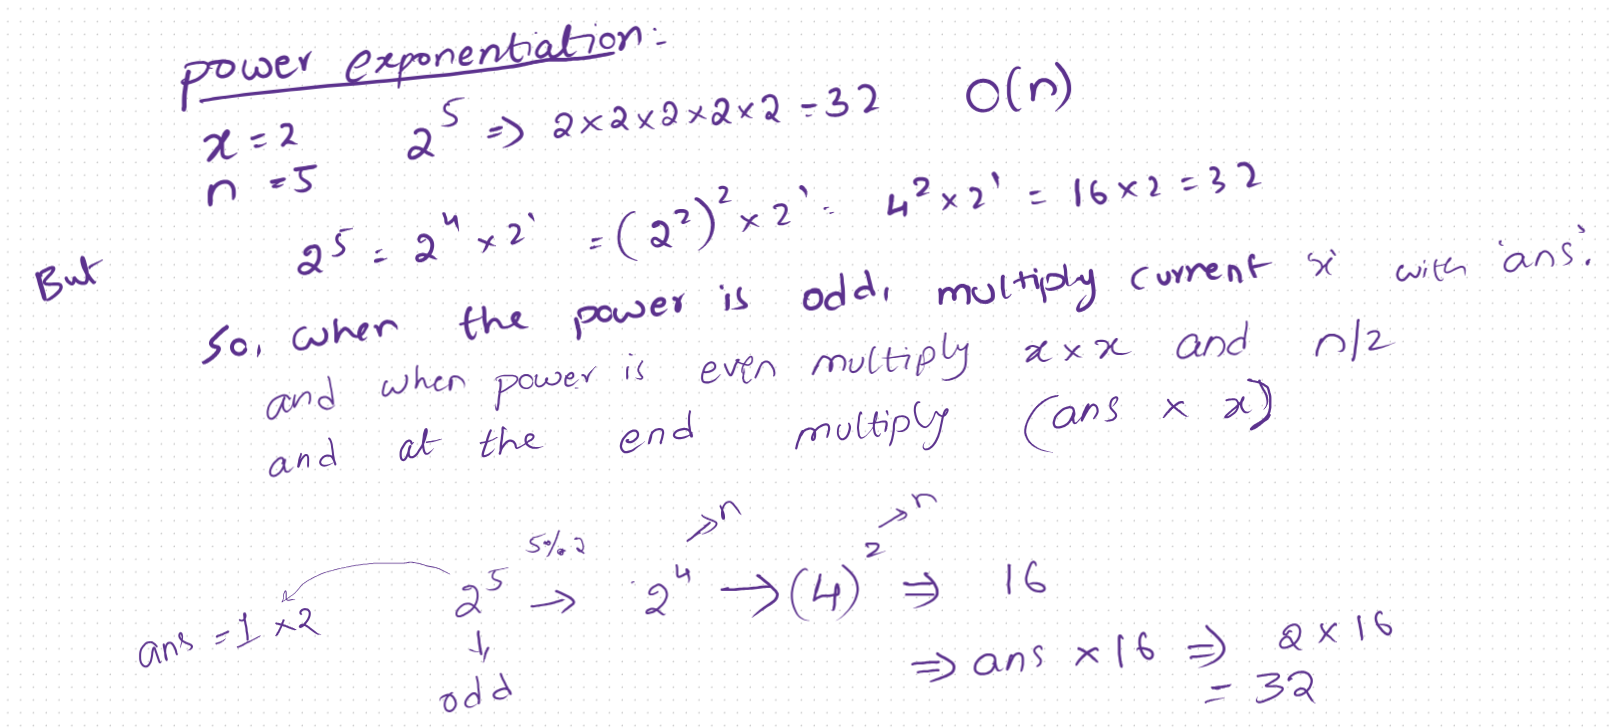 power exponentiation:-
x = 2 2⁵ => 2×2×2×2×2 = 32 O(n)
n = 5
But 2⁵ = 2⁴ × 2¹ = (2²)² × 2¹ = 4² × 2¹ = 16 × 2 = 32
So, when the power is odd, multiply current 'x' with 'ans'.
and when power is even multiply x × x and n/2
and at the end multiply (ans × x)
n n
5%2
ans = 1 × 2 2⁵ → 2⁴ → (4)² => 16
odd
=> ans × 16 => 2 × 16
= 32